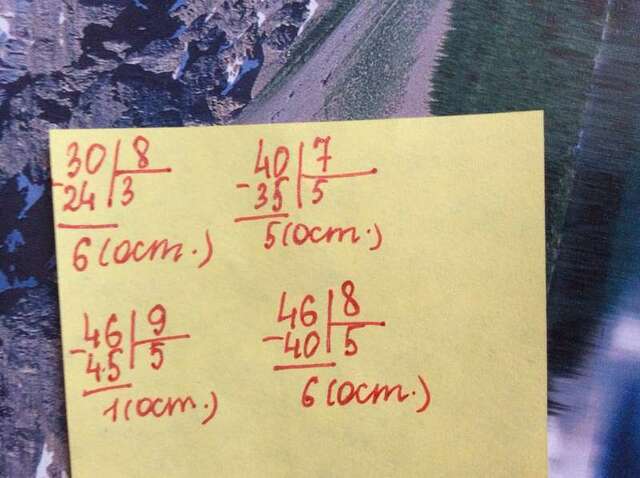 30 8 40 7
-24 3 -35 5
6 (ост.) 5 (ост.)
46 9 46 8
-45 5 -40 5
1 (ост.) 6 (ост.)